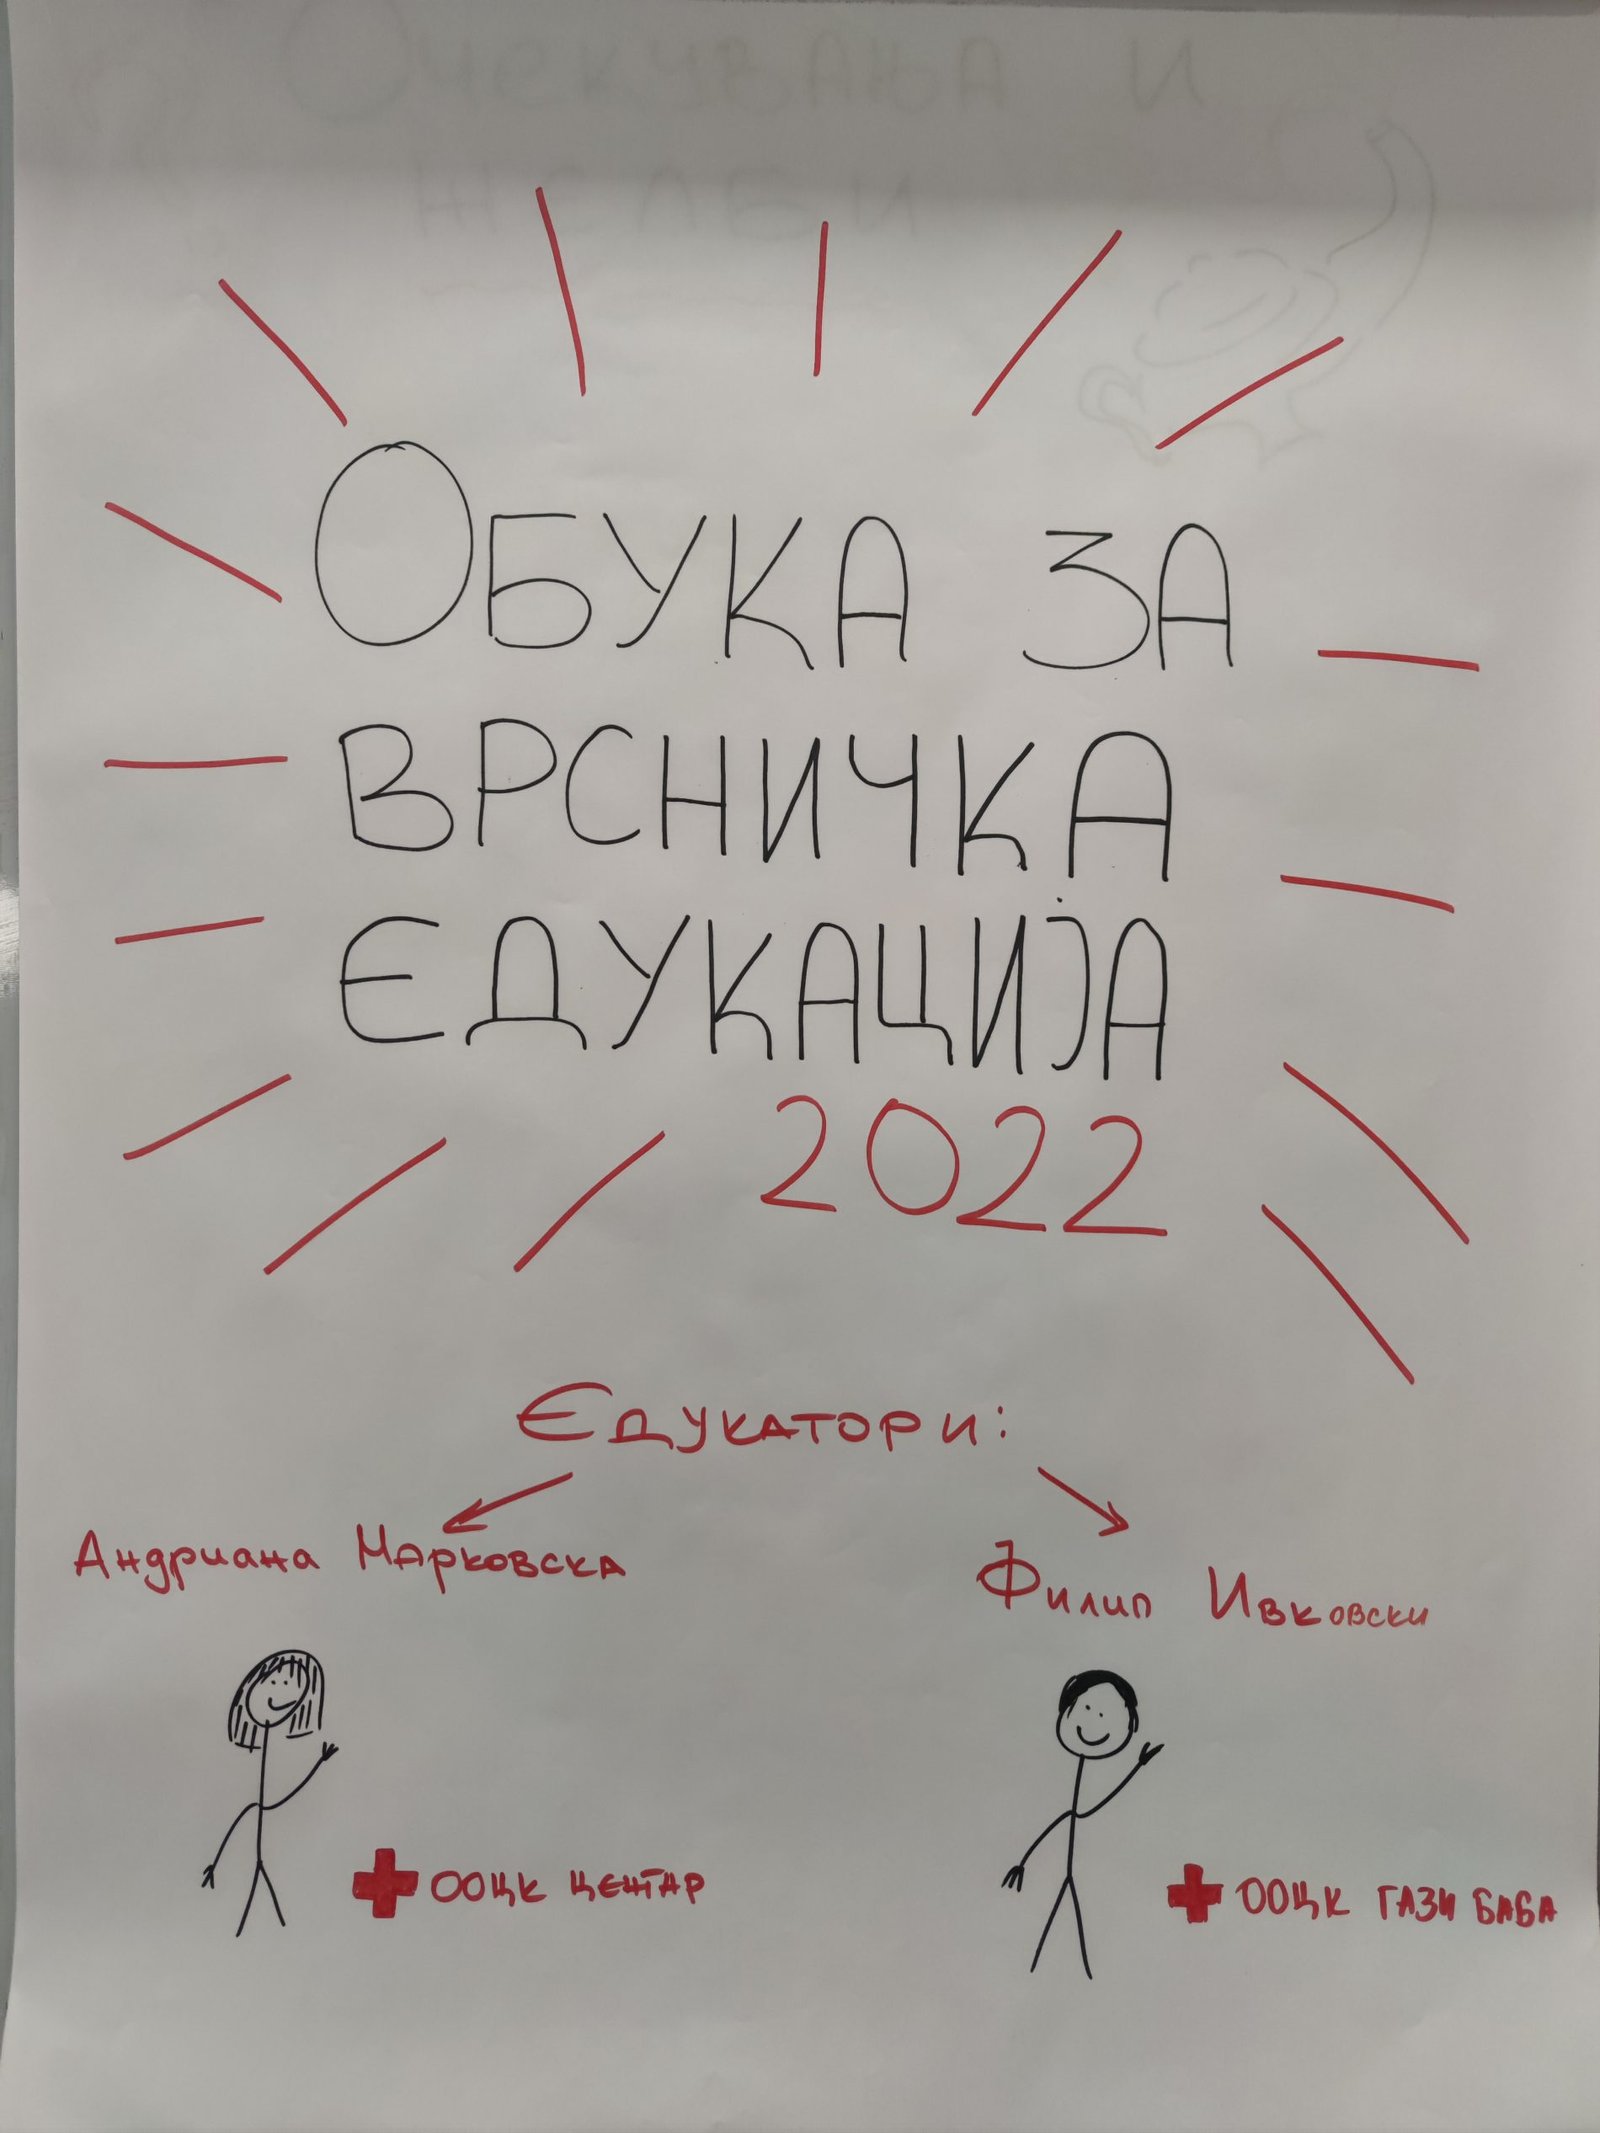 Очекувања и
желби
Обука за
врсничка
едукација
2022
Едукатори:
Андриана Марковска
Филип Ивковски
ООЦК ЦЕНТАР
ООЦК ГАЗИ БАБА